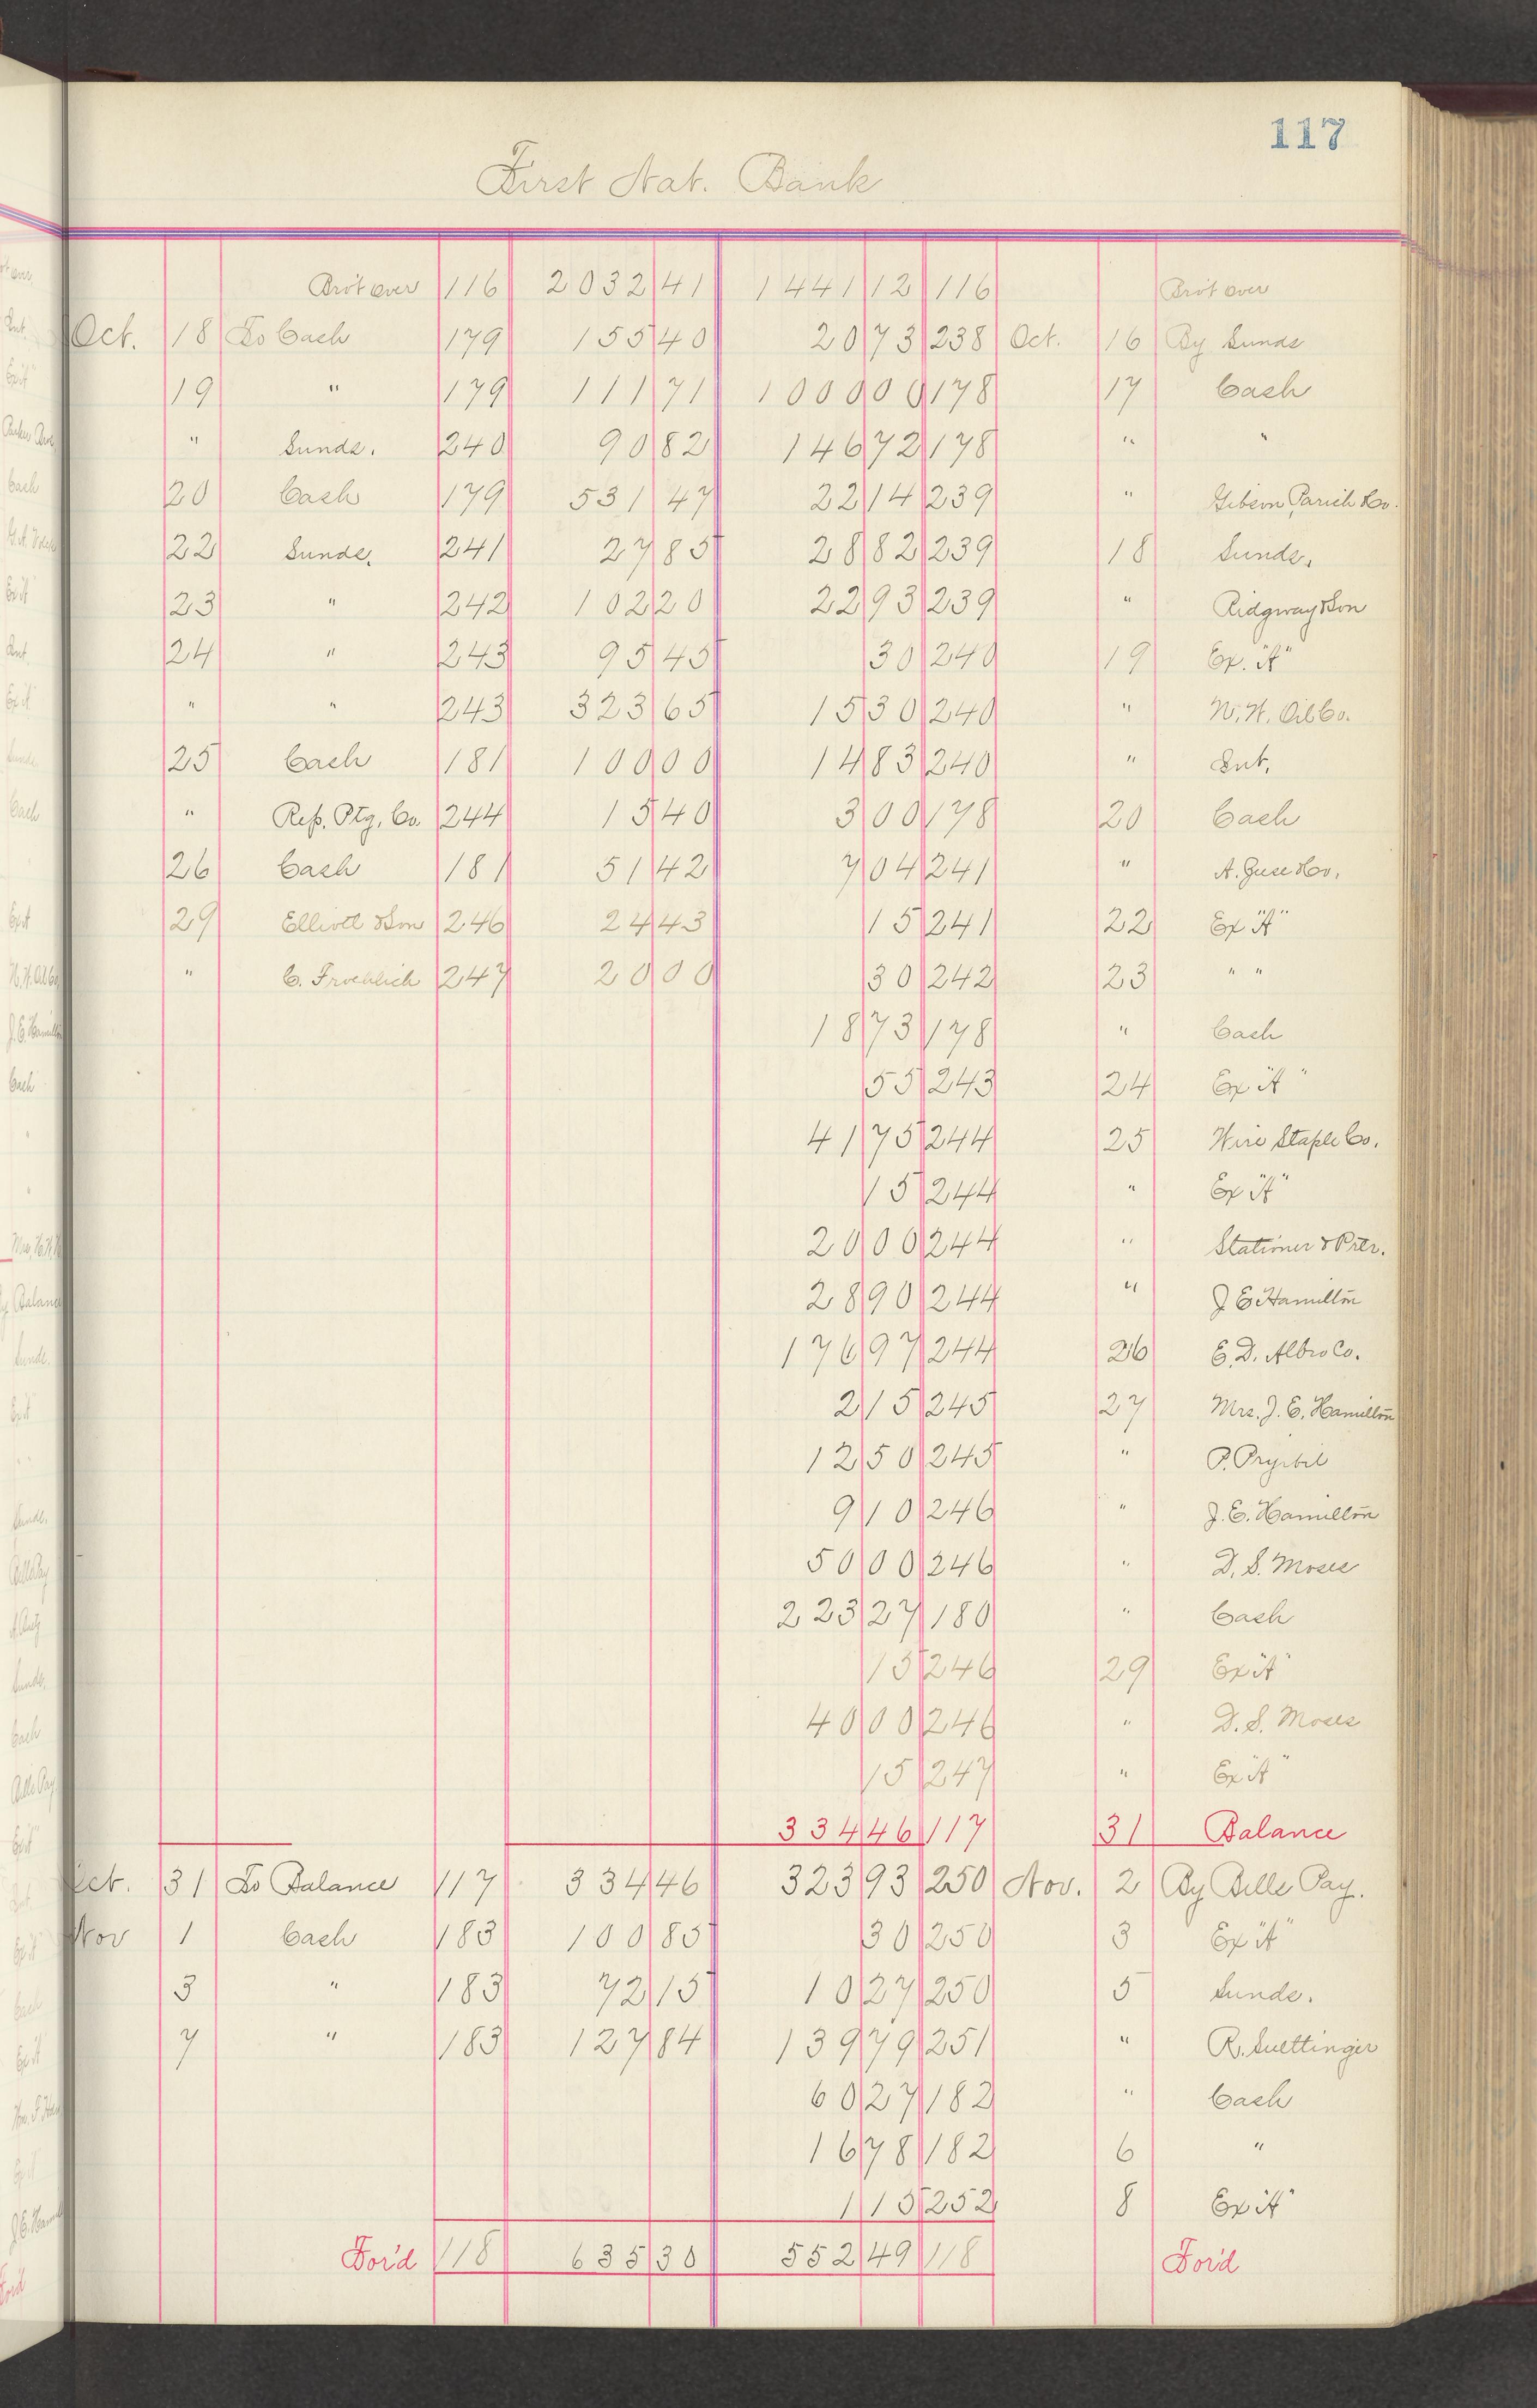 117
First Nat. Bank
Bro't over 116 2032 41 1441 12 116 Bro't over
Oct. 18 To Cash 179 155 40 20 73 238 Oct. 16 By Sunds
19 " 179 111 71 1000 00 178 17 Cash
" Sunds. 240 90 82 146 72 178 " "
20 Cash 179 531 47 22 14 239 " Gibson, Parish &Co.
22 Sunds. 241 27 85 28 82 239 18 Sunds.
23 " 242 102 20 22 93 239 " Ridgway &Son
24 " 243 95 45 30 240 19 Ex. "A"
" " 243 323 65 15 30 240 " W. H. Oil Co.
25 Cash 181 100 00 14 83 240 " Int.
" Rep. Ptg. Co. 244 15 40 3 00 178 20 Cash
26 Cash 181 51 42 7 04 241 " A. Guse &Co.
29 Elliott &Son 246 24 43 15 241 22 Ex "A"
" C. Froehlich 247 20 00 30 242 23 " "
18 73 178 " Cash
55 243 24 Ex "A"
41 75 244 25 Wire Staple Co.
15 244 " Ex "A"
20 00 244 " Stationer & Prtr.
28 90 244 " J E Hamilton
176 97 244 26 E. D. Albro Co.
2 15 245 27 Mrs. J. E. Hamilton
12 50 245 " P. Pryibil
9 10 246 " J. E. Hamilton
50 00 246 " D. S. Moses
223 27 180 " Cash
15 246 29 Ex "A"
40 00 246 " D. S. Moses
15 247 " Ex "A"
334 46 117 31 Balance
Oct. 31 To Balance 117 334 46 323 93 250 Nov. 2 By Bills Pay.
Nov 1 Cash 183 100 85 30 250 3 Ex "A"
3 " 183 72 15 10 27 250 5 Sunds.
7 " 183 127 84 139 79 251 " R. Suettinger
60 27 182 " Cash
16 78 182 6 "
1 15 252 8 Ex "A"
For'd 118 635 30 552 49 118 For'd